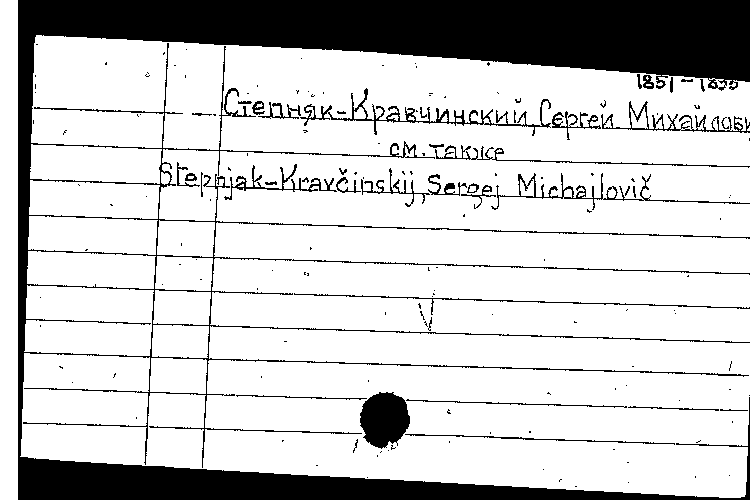 1851-1895
Степняк-Кравчинский, Сергей Михайлови
см. также
Stepnjak-Kravčinskij, Sergej Michajlovič